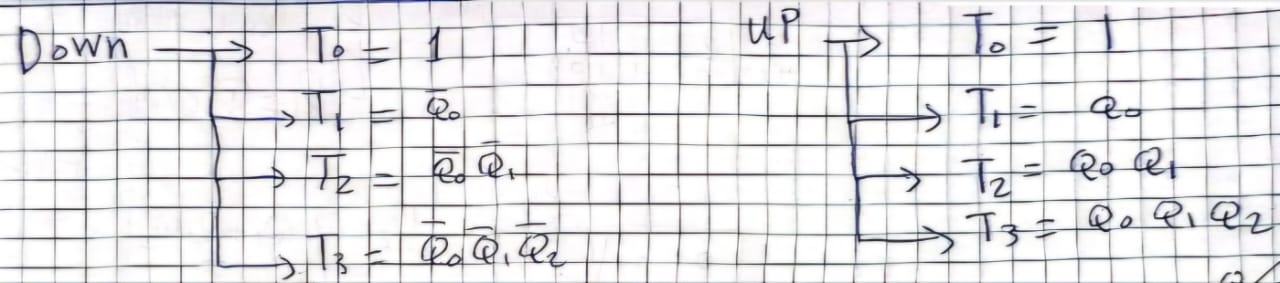 Down → T₀ = 1
→ T₁ = Q̅₀
→ T₂ = Q̅₀ Q̅₁
→ T₃ = Q̅₀ Q̅₁ Q̅₂
UP → T₀ = 1
→ T₁ = Q₀
→ T₂ = Q₀ Q₁
→ T₃ = Q₀ Q₁ Q₂